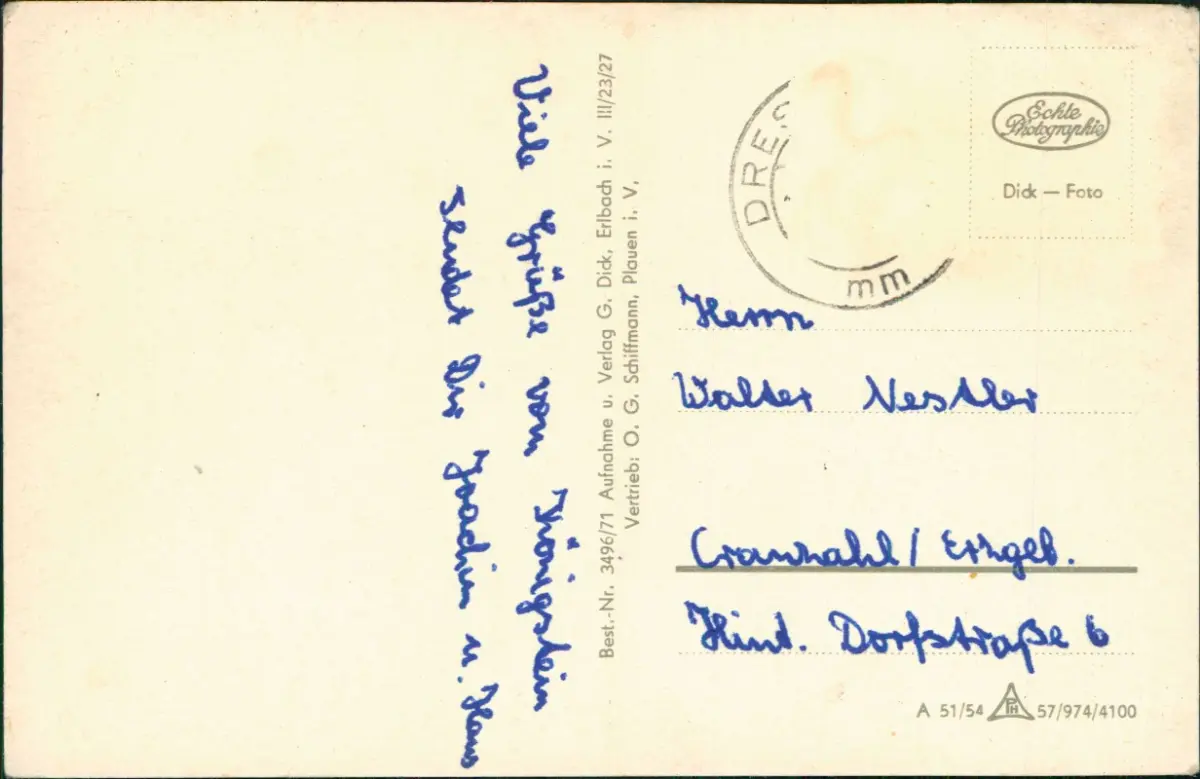 Viele Grüße vom Königstein
sendet Dir Joachim u. Hans
Best.-Nr. 3496/71 Aufnahme u. Verlag G. Dick, Erlbach i. V. III/23/27
Vertrieb: O. G. Schiffmann, Plauen i. V.
DRES
mm
Echte
Photographie
Dick — Foto
Herrn
Walter Nestler
Cranzahl / Erzgeb.
Hint. Dorfstraße 6
A 51/54 PH 57/974/4100